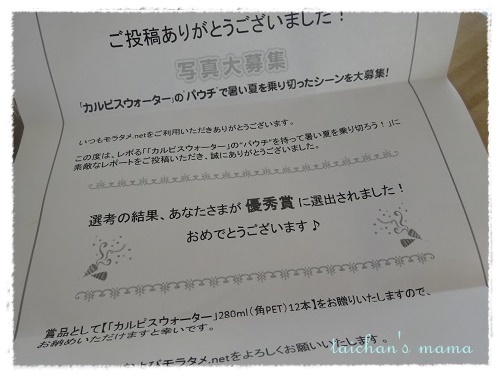 ご投稿ありがとうございました！
写真大募集
「カルピスウォーター」の"パウチ"で暑い夏を乗り切ったシーンを大募集！
いつもモラタメ.netをご利用いただきありがとうございます。
この度は、レポる「「カルピスウォーター」の"パウチ"を持って暑い夏を乗り切ろう！」に
素敵なレポートをご投稿いただき、誠にありがとうございました。
選考の結果、あなたさまが 優秀賞 に選出されました！
おめでとうございます♪
賞品として【「カルピスウォーター」280ml（角PET）12本】をお贈りいたしますので、
お納めいただけますと幸いです。
およびモラタメ.netをよろしくお願いいたします。
taichan's mama